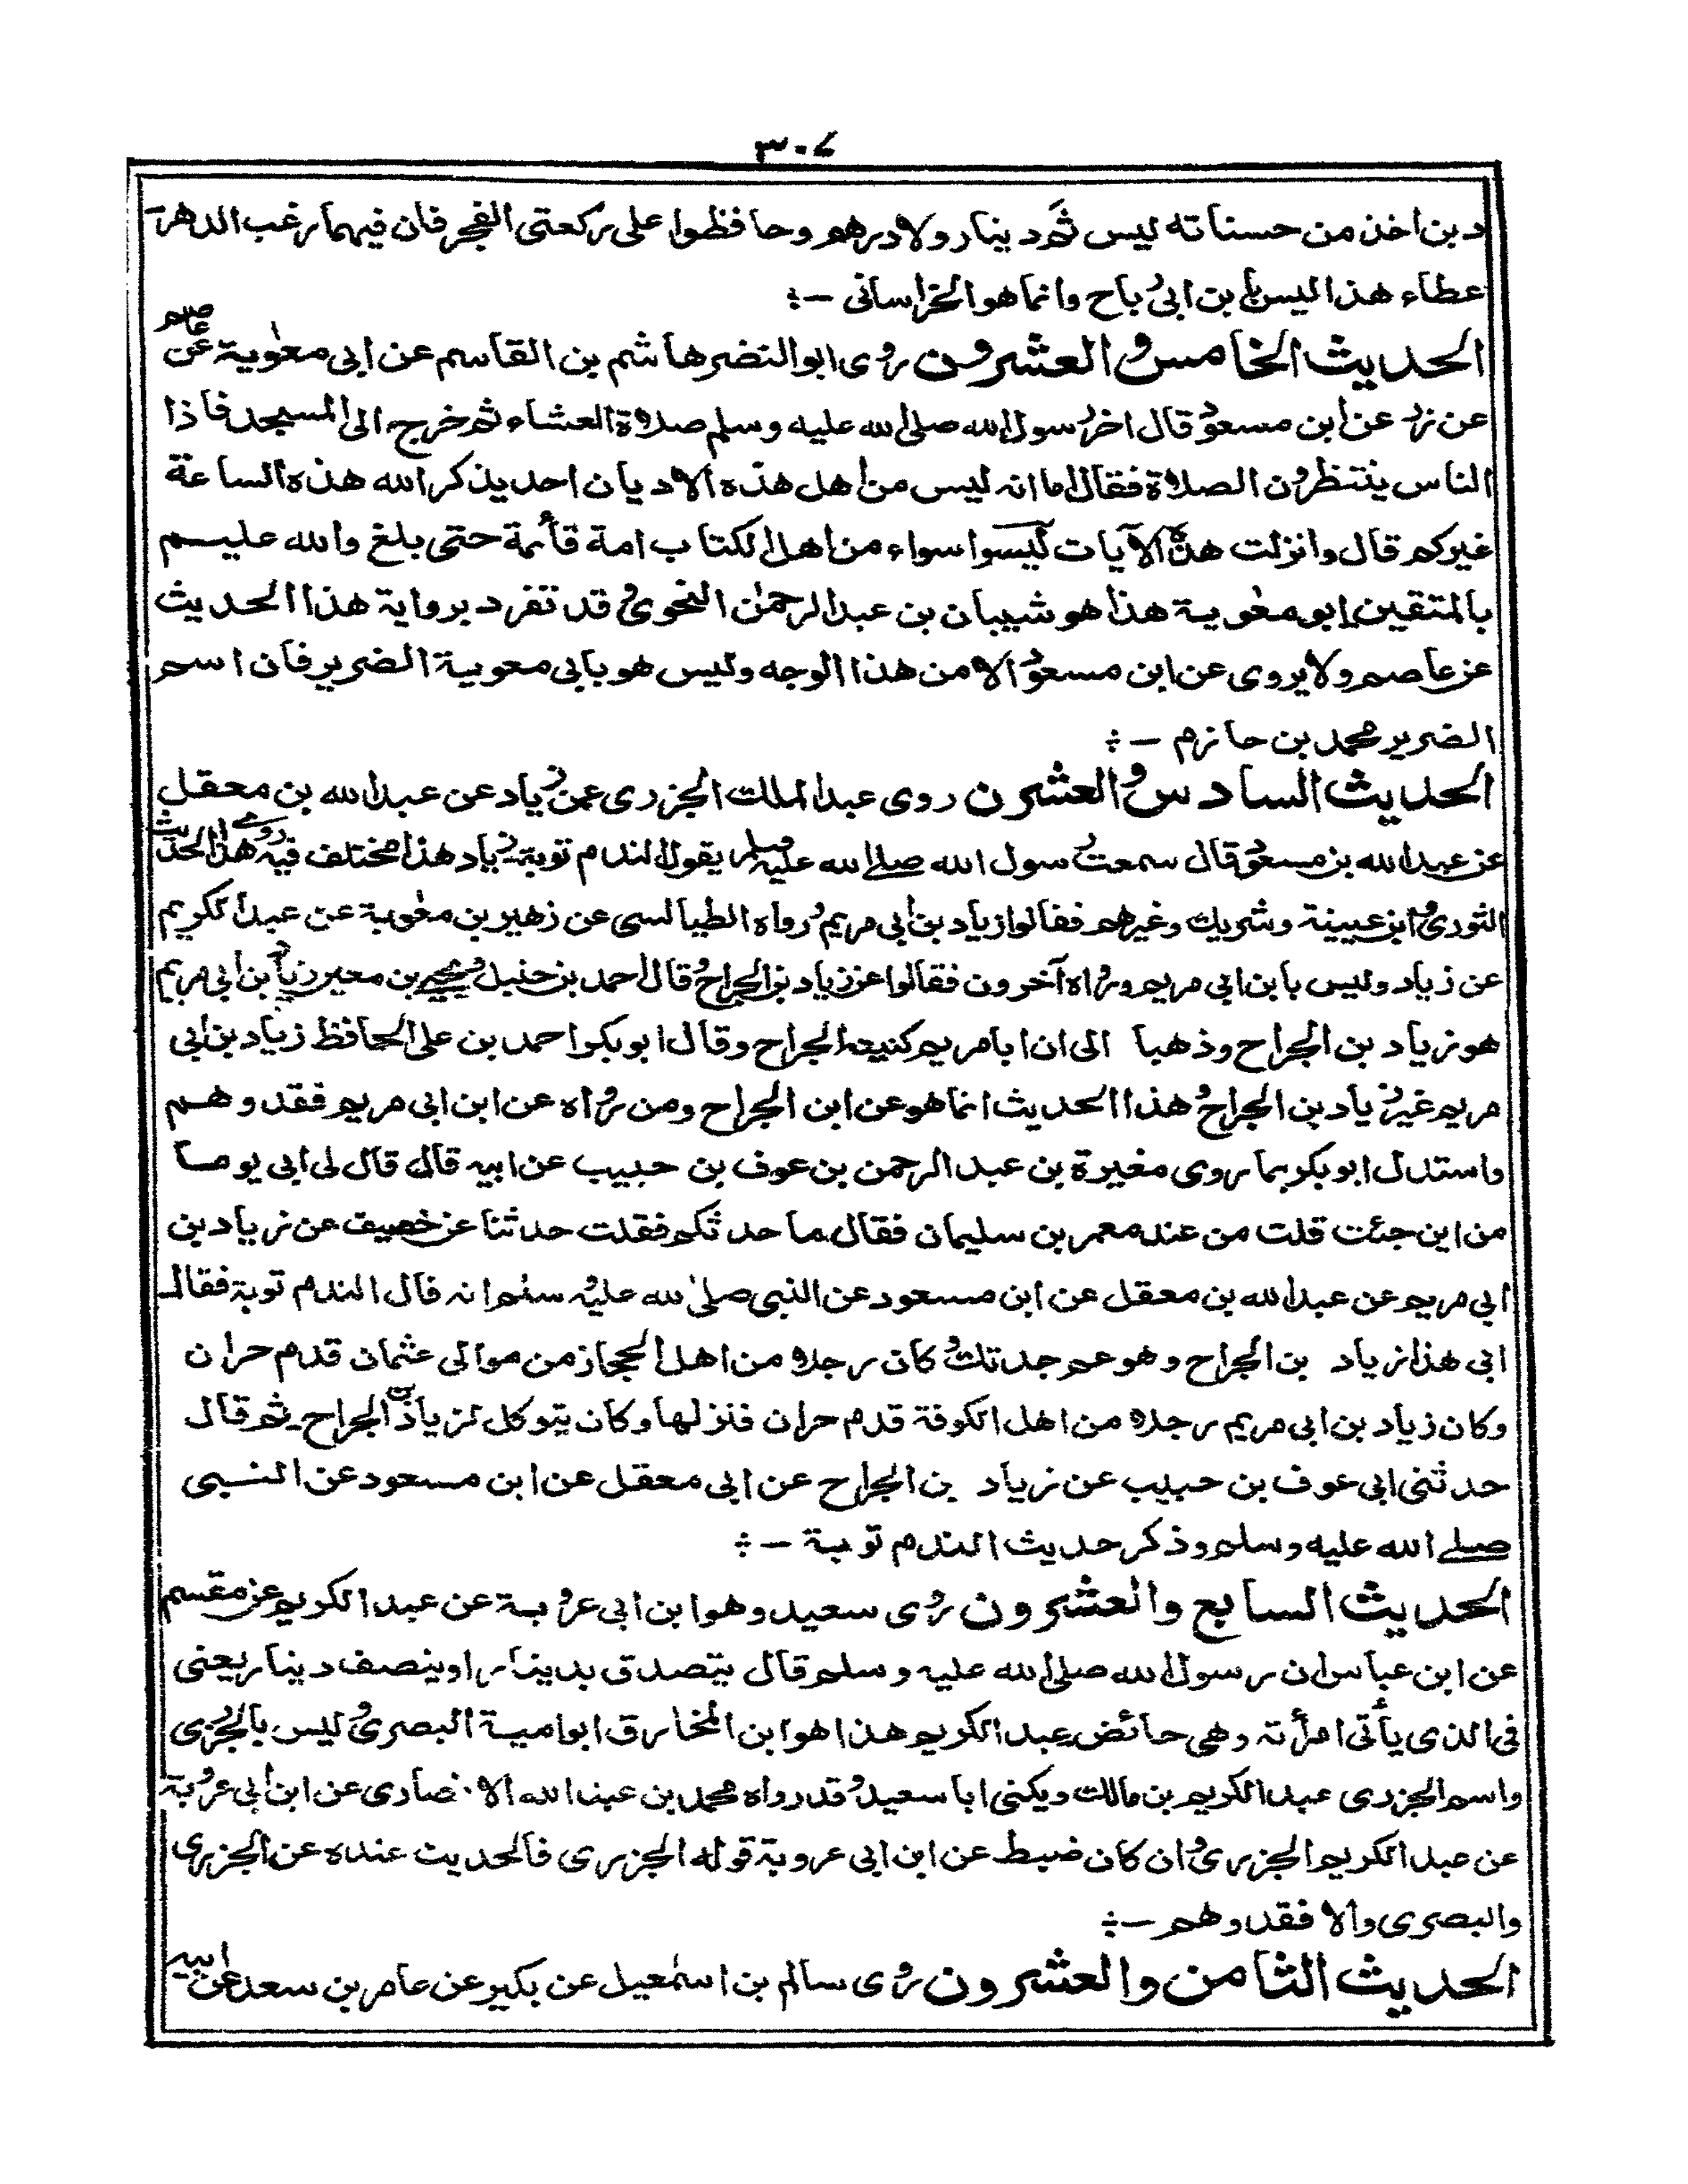 ٣٠٧
دين اخذ من حسناته ليس ثم دينار ولا درهم وحافظوا على ركعتى الفجر فان فيهما رغب الدهر
عطاء هذا ليس بابن ابى رباح وانما هو الخراسانى -:
الحديث الخامس والعشرون روى ابو النضر هاشم بن القاسم عن ابى معوية عن عاصم
عن زر عن ابن مسعود قال اخر رسول الله صلى الله عليه وسلم صلاة العشاء ثم خرج الى المسجد فاذا
الناس ينتظرون الصلاة فقال اما انه ليس من اهل هذه الاديان احد يذكر الله هذه الساعة
غيركم قال وانزلت هذه الآيات ليسوا سواء من اهل الكتاب امة قائمة حتى بلغ والله عليم
بالمتقين ابو معوية هذا هو شيبان بن عبد الرحمن النحوى وقد تفرد برواية هذا الحديث
عن عاصم ولا يروى عن ابن مسعود الا من هذا الوجه وليس هو بابى معوية الضرير فان اسم
الضرير محمد بن حازم -:
الحديث السادس والعشرون روى عبد الملك الجزرى عن زياد عن عبد الله بن معقل
عن عبد الله بن مسعود قال سمعت رسول الله صلى الله عليه وسلم يقول الندم توبة زياد هذا مختلف فيه روى هذا الحديث
الثورى وابن عيينة وشريك وغيرهم فقالوا زياد بن ابى مريم ورواه الطيالسى عن زهير بن معوية عن عبد الكريم
عن زياد وليس بابن ابى مريم ورواه آخرون فقالوا عن زياد بن الجراح وقال احمد بن حنبل ويحيى بن معين زياد بن ابى مريم
هو زياد بن الجراح وذهبا الى ان ابا مريم كنيته الجراح وقال ابو بكر احمد بن على الحافظ زياد بن ابى
مريم غير زياد بن الجراح وهذا الحديث انما هو عن ابن الجراح ومن رواه عن ابن ابى مريم فقد وهم
واستدل ابو بكر بما روى مغيرة بن عبد الرحمن بن عوف بن حبيب عن ابيه قال قال لى ابى يوما
من اين جئت قلت من عند معمر بن سليمان فقال ما حدثكم فقلت حدثنا عن خصيف عن زياد بن
ابى مريم عن عبد الله بن معقل عن ابن مسعود عن النبى صلى الله عليه وسلم انه قال الندم توبة فقال
ابى هذا زياد بن الجراح وهو عم جدتك وكان رجلا من اهل الحجاز من موالى عثمان قدم حران
وكان زياد بن ابى مريم رجلا من اهل الكوفة قدم حران فنزلها وكان يتوكل لزياد بن الجراح ثم قال
حدثنى ابى عوف بن حبيب عن زياد بن الجراح عن ابى معقل عن ابن مسعود عن النبى
صلى الله عليه وسلم وذكر حديث الندم توبة -:
الحديث السابع والعشرون روى سعيد وهو ابن ابى عروبة عن عبد الكريم عن مقسم
عن ابن عباس ان رسول الله صلى الله عليه وسلم قال يتصدق بدينار او بنصف دينار يعنى
فى الذى يأتى امرأته وهى حائض عبد الكريم هذا هو ابن المخارق ابو امية البصرى وليس بالجزرى
واسم الجزرى عبد الكريم بن مالك ويكنى ابا سعيد وقد رواه محمد بن عبد الله الانصارى عن ابن ابى عروبة
عن عبد الكريم الجزرى وان كان ضبط عن ابن ابى عروبة قوله الجزرى فالحديث عنده عن الجزرى
والبصرى والا فقد وهم -:
الحديث الثامن والعشرون روى سالم بن اسمعيل عن بكير عن عامر بن سعد عن ابيه